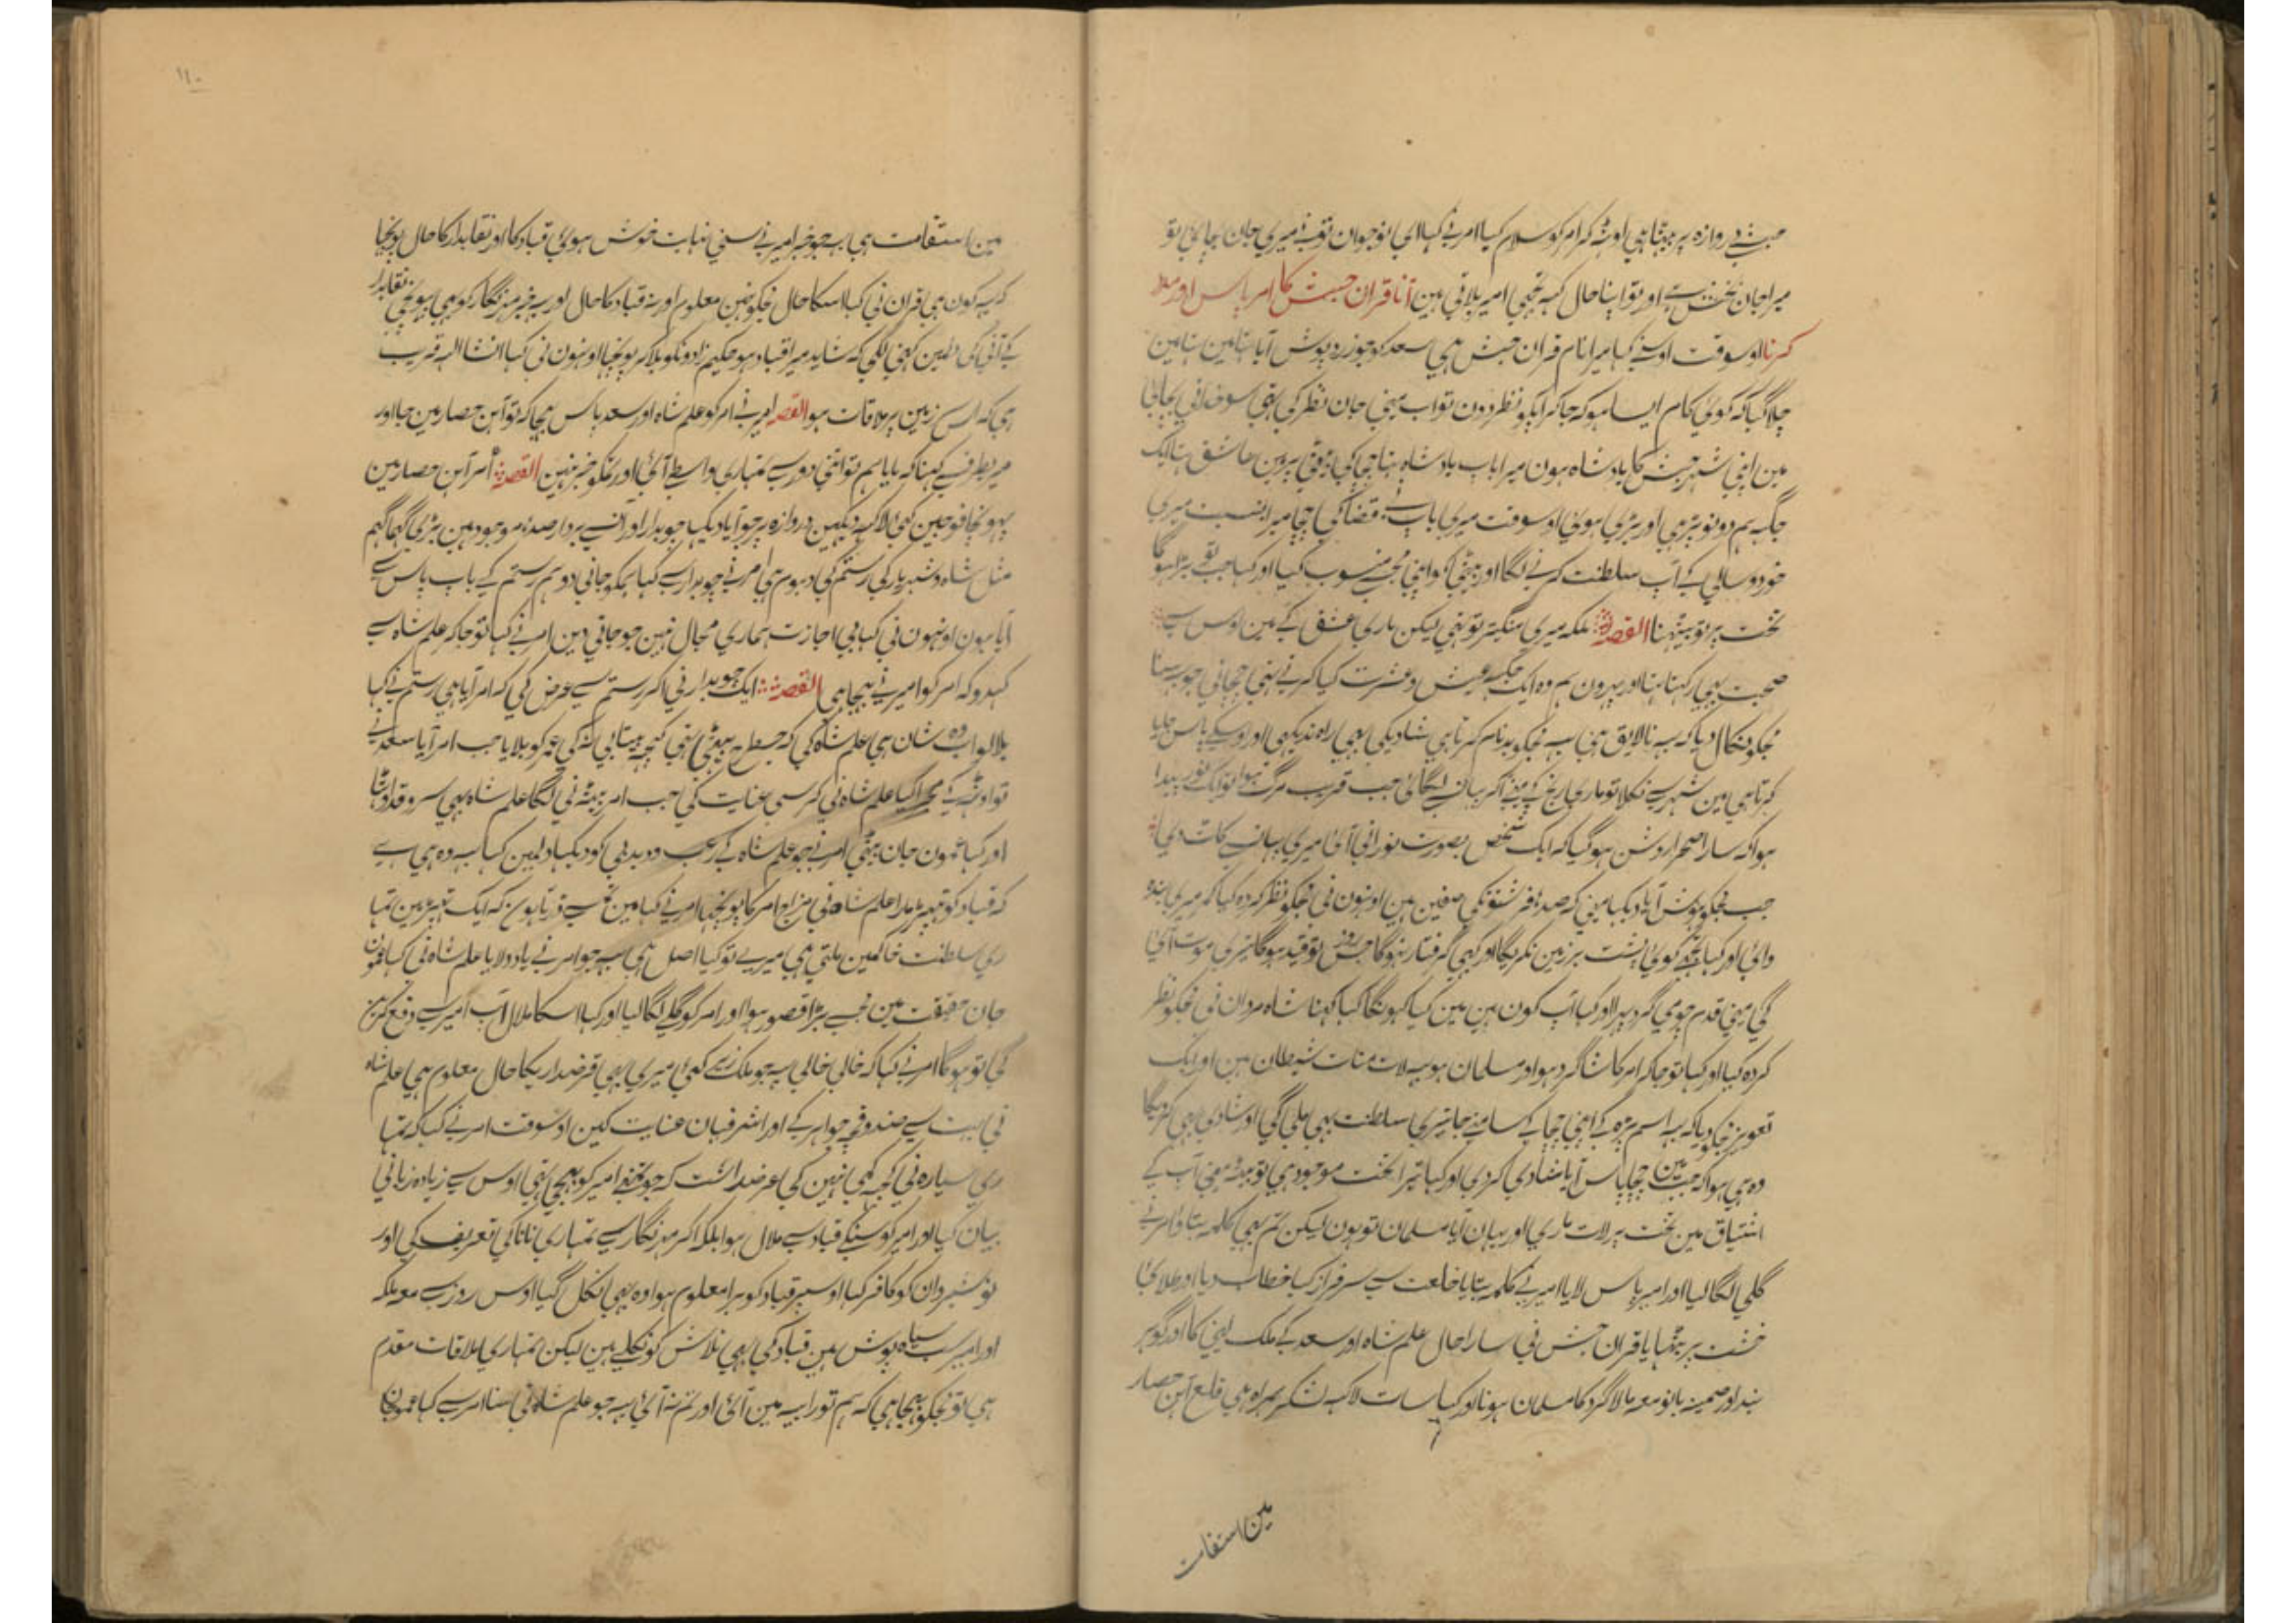 حبشی دروازہ پر بیٹھا ہی اوٹھہ کر امر کو سلام کیا امر نی کہا ای نوجوان تونی میری جان بچائی تو
میرا جان بخش ہی اور تو اپنا حال کہہ تجھی امیر بلاتی ہین آنا قران حبش کا امر پاس اور ملا
کرنا اوسوقت اوسنی کہا میرا نام قران حبش ہی سعد کو جو زرد پوش آیا تھا مین
چلا گیا کہ کوئی کام ایسا ہو کہ جا کر ایکو نظر دون تو اب مینی جان نظر کی تھی سو خدا نی بچالی
مین اپنی شہر حبش کا بادشاہ ہون میرا باپ بادشاہ تھا چچا کی بیٹی پر مین عاشق تھا ایک
جگہہ ہم دونو بڑہی اور بڑی ہوئی اوسوقت میری باپ نی قضا کی چچا میرا بسبب میری
خورد سالی کی آپ سلطنت کرنی لگا اور بیٹی کو اپنی مجسی منسوب کیا اور کہا جب تو بڑا ہوگا
تخت پر تو بیٹھنا القصہ ملکہ میری منگیتر تو تھی لیکن ماری عشق کی مین اوس سی
صحبت بھی رکھتا تھا اور پہرون ہم وہ ایک جگہہ عیش و عشرت کیا کرتی تھی چچا نی جو یہ سنا
مجکو نکال دیا کہ یہ نالایق ہی یہ مجکو بدنام کرتا ہی شادیکی بھی راہ ندیکھی اور اوسکی پاس جایا
کرتا ہی مین شہر سی نکلا تو ماری رنج کی مینی آکر پھانسی لگائی جب قریب مرگ ہوا تو ایک نور پیدا
ہوا کہ سارا صحرا روشن ہو گیا کہ ایک شخص بصورت نورانی آئی میری پھانسی کاٹ دی
جب مجکو ہوش آیا دیکھا مینی کہ صدہا فرشتونکی صفین ہین اونہون نی مجکو نظر کردہ کیا کمر میری بندہ
وائی اور کہا تجھی کوئی پشت بر زمین نکریگا اور کبھی گرفتار نہوگا جس روز تو قید ہوگا تیری موت آئی
گی مینی قدم چومی گرد پہرا اور کہا آپ کون ہین مین کیا کہونگا کہا کہنا شاہ مردان نی مجکو نظر
کردہ کیا اور کہا تو جا کر امر کا شاگرد ہو اور مسلمان ہو یہ لات منات شیطان ہین اور ایک
تعویز مجکو دیا کہ یہ اسم پڑہ کی اپنی چچا کی سامنی جا تیری سلطنت بھی ملی گی اور شادی بھی کر دیگا
وہ ہی ہوا کہ جب مین چچا پاس آیا شادی کر دی اور کہا تیرا تخت موجود ہی تو بیٹھہ مینی آپ کی
اشتیاق مین تخت پر لات ماری اور یہان آیا مسلمان تو ہون لیکن تم بھی کلمہ بتاؤ امر نی
گلی لگا لیا اور امیر پاس لایا امیر نی کلمہ بتایا خلعت سی سرفراز کیا خطاب دیا اور طلائی
خشت پر بیٹھایا قران حبش نی سارا حال علم شاہ اور سعد کی ملک لینی کا اور گوہر
بند اور صمینہ بانو معہ مالا گرد کا مسلمان ہونا اور کہا سات لاکہہ لشکر ہمراہ ہی قلع آہن حصار
مین استقامت
۱۱۰
مین استقامت ہی یہ جو خبر امیر نی سنی نہایت خوش ہوئی قباد کا اور نقابدار کا حال پوچھا
کہ یہ کون ہی قران نی کہا اسکا حال مجکو نہین معلوم اور نہ قباد کا حال اور یہ خبر مہر نگار کو بھی پہونچی نقابدار
کی آنی کی دلمین کہنی لگی کہ شاید میرا قباد ہو حکیم زادونکو بلا کر پوچھا اونہون نی کہا انشا اللہ قریب
ہی کہ اس زمین پر ملاقات ہو القصہ امیر نی امر کو علم شاہ اور سعد پاس بھیجا کہ تو آہن حصار مین جا اور
میریطرف سی کہنا کہ بابا ہم تو اتنی دور سی تمہاری واسطی آئی اور تمکو خبر نہین القصہ امر آہن حصار مین
پہونچا فوجین کئی لاکہہ دیکھین دروازہ پر جو آیا دیکھا چوبدار اور بردار صدہا موجود ہین بڑی گہما گہم
مثل شاہ و شہریار کی رستم کی دہوم ہی امر نی چوبدار سی کہا ہمکو جانی دو ہم رستم کی باپ پاس سی
آیا ہون اونہون نی کہا بی اجازت ہماری مجال نہین جو جانی دین امر نی کہا تو جا کر علم شاہ سی
کہدو کہ امر کو امیر نی بھیجا ہی القصہ ایک چوبدار نی آکر رستم سی عرض کی کہ امر آیا ہی رستم نی کہا
بلا لو اب وہ شان ہی علم شاہ کی کہ جسطرح بیٹھی تھی کچھہ بیتابی نہ کی عمر کو بلایا جب امر آیا سعد نی
تو اوٹھہ کی مجرا کیا علم شاہ نی کرسی عنایت کی جب امر بیٹھنی لگا علم شاہ بھی سرو قد اوٹھا
اور کہا عمون جان بیٹھی امر نی جو علم شاہ کی رعب و دبدبی کو دیکھا دلمین کہا یہ وہ ہی ہی
کہ قباد کو تھپڑ مارا علم شاہ نی مزاج امر کا پوچھا امر نی کہا مین تجسی ڈرتا ہون کہ ایک تھپڑ مین تمہا
ری سلطنت خاکمین ملتی ہی میری تو کیا اصل ہی یہ جو امر نی یاد دولایا علم شاہ نی کہا عمون
جان حقیقت مین مجسی بڑا قصور ہوا اور امر کو گلی لگا لیا اور کہا اسکا ملال اب امیر سی دفع کرین
گی تو ہوگا امر نی کہا کہ خالی خالی یہ جو ملک میری بھی قرضداریکا حال معلوم ہی علم شاہ
نی بہت سی صندوقچی جواہر کی اور اشرفیان عنایت کین اوسوقت امر نی کہا کہ تمہا
ری سیارہ نی کچھہ کمی نہین کی عرضداشت کہ جو تمنی امیر کو بھیجی تھی اوس سی زیادہ زبانی
بیان کیا اور امیر کو سنکی قباد سی ملال ہوا بلکہ آکر مہر نگار سی تمہاری نانا کی تعریف کی اور
نوشیروان کو کافر کہا اوسپر قباد کو برا معلوم ہوا وہ بھی نکل گیا اوس روز سی معہ ملکہ
اور امیر سب سیاہ پوش ہین قباد کی بھی تلاش کو نکلی ہین لیکن تمہاری ملاقات مقدم
ہی تو مجکو بھیجا ہی کہ ہم تو رابیہ مین آئی اور تم نہ آئی یہ جو علم شاہ نی سنا امر سی کہا عمونجان